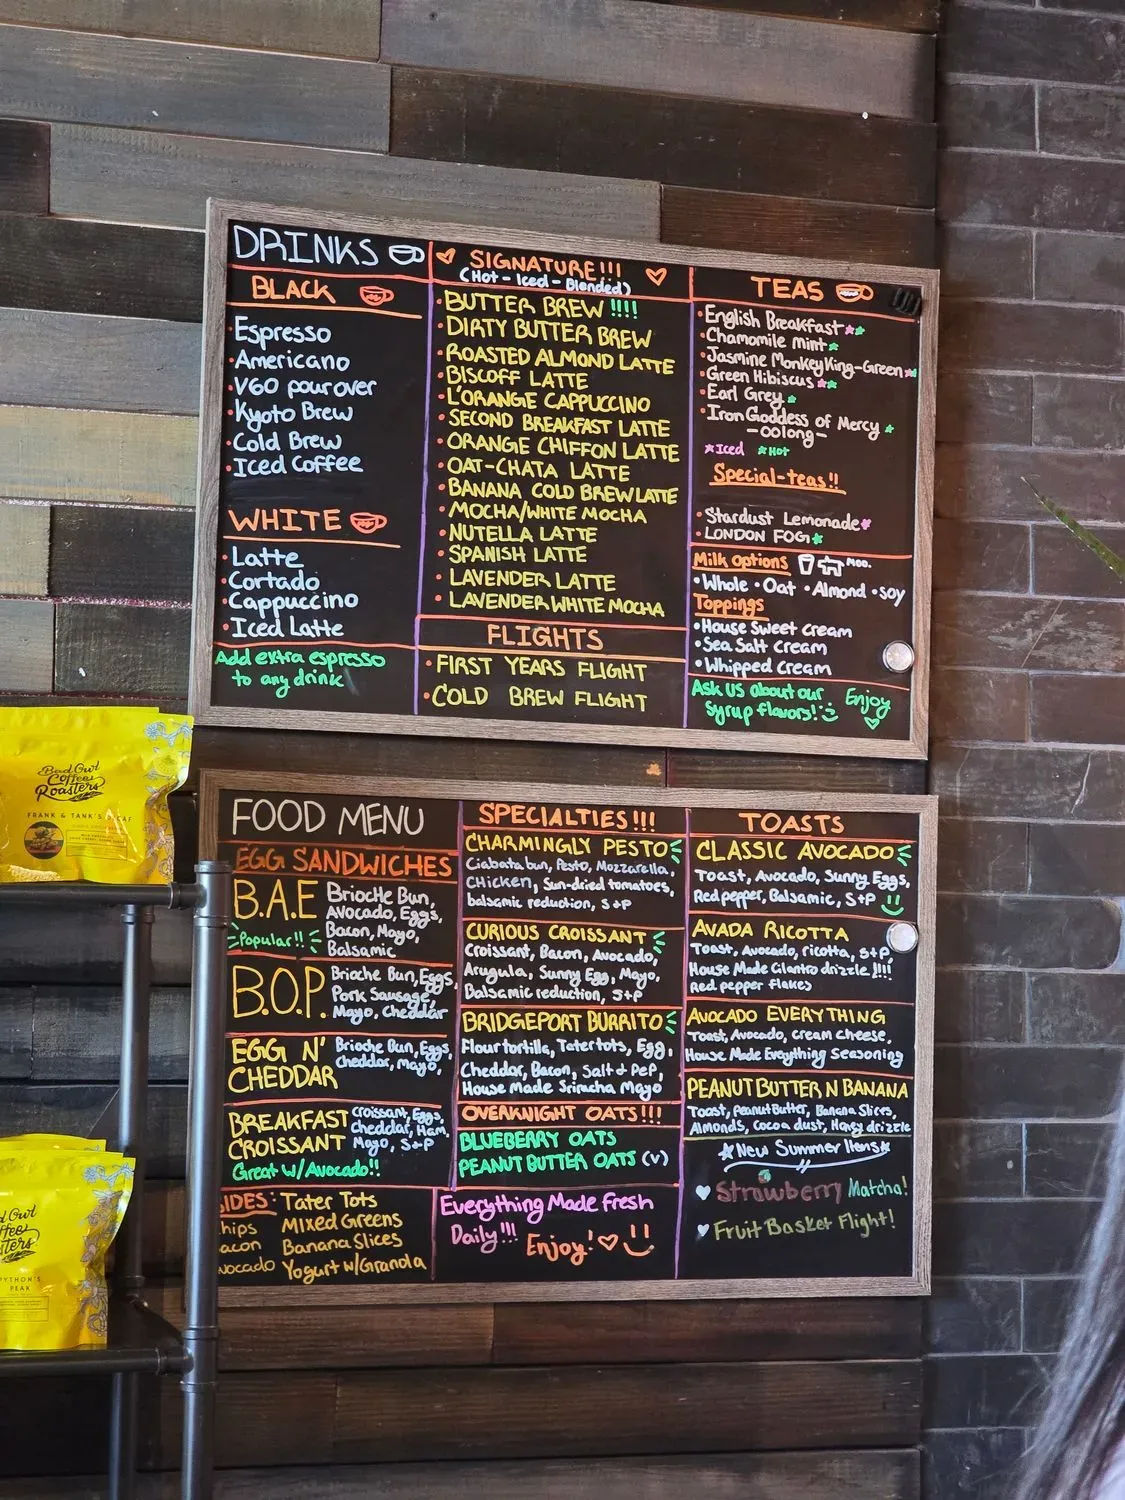 DRINKS
BLACK
• Espresso
• Americano
• V60 pour over
• Kyoto Brew
• Cold Brew
• Iced Coffee
WHITE
• Latte
• Cortado
• Cappuccino
• Iced Latte
Add extra espresso
to any drink
SIGNATURE!!!
(Hot - Iced - Blended)
• BUTTER BREW !!!!
• DIRTY BUTTER BREW
• ROASTED ALMOND LATTE
• BISCOFF LATTE
• L'ORANGE CAPPUCCINO
• SECOND BREAKFAST LATTE
• ORANGE CHIFFON LATTE
• OAT-CHATA LATTE
• BANANA COLD BREW LATTE
• MOCHA/WHITE MOCHA
• NUTELLA LATTE
• SPANISH LATTE
• LAVENDER LATTE
• LAVENDER WHITE MOCHA
FLIGHTS
• FIRST YEARS FLIGHT
• COLD BREW FLIGHT
TEAS
• English Breakfast
• Chamomile mint
• Jasmine Monkey King-Green
• Green Hibiscus
• Earl Grey
• Iron Goddess of Mercy
-oolong-
Iced Hot
Special-teas!!
• Stardust Lemonade
• LONDON FOG
Milk options Moo.
• Whole • Oat • Almond • soy
Toppings
• House Sweet cream
• Sea Salt cream
• Whipped cream
Ask us about our
Syrup flavors!
Enjoy
FOOD MENU
EGG SANDWICHES
B.A.E
Popular!!
Brioche Bun,
Avocado, Eggs,
Bacon, Mayo,
Balsamic
B.O.P.
Brioche Bun, Eggs,
Pork Sausage,
Mayo, Cheddar
EGG N'
CHEDDAR
Brioche Bun, Eggs,
Cheddar, Mayo,
BREAKFAST
CROISSANT
Great w/Avocado!!
croissant, Eggs,
cheddar, Ham,
Mayo, S+P
SIDES: Tater Tots
hips Mixed Greens
acon Banana Slices
vocado Yogurt w/Granola
SPECIALTIES!!!
CHARMINGLY PESTO
Ciabata bun, Pesto, Mozzarella,
CHicken, Sun-dried tomatoes,
balsamic reduction, S+P
CURIOUS CROISSANT
Croissant, Bacon, Avocado,
Arugula, Sunny Egg, Mayo,
Balsamic reduction, S+P
BRIDGEPORT BURRITO
Flour tortilla, Tater tots, Egg,
Cheddar, Bacon, Salt & PeP,
House Made Sriracha Mayo
OVERKNIGHT OATS!!!
BLUEBERRY OATS
PEANUT BUTTER OATS (V)
Everything Made Fresh
Daily!!!
Enjoy!
TOASTS
CLASSIC AVOCADO
Toast, Avocado, Sunny Eggs,
Red pepper, Balsamic, S+P
AVADA RICOTTA
Toast, Avocado, ricotta, S+P,
House Made Cilantro drizzle!!!!
Red pepper flakes
AVOCADO EVERYTHING
Toast, Avocado, cream cheese,
House Made Everything Seasoning
PEANUT BUTTER N BANANA
Toast, Peanut Butter, Banana Slices,
Almonds, Cocoa dust, Honey drizzle
New Summer Items
Strawberry Matcha!
Fruit Basket Flight!
Bad Owl
Coffee
Roasters
FRANK & TANK'S
d Owl
ffee
sters
PYTHON'S
PEAK